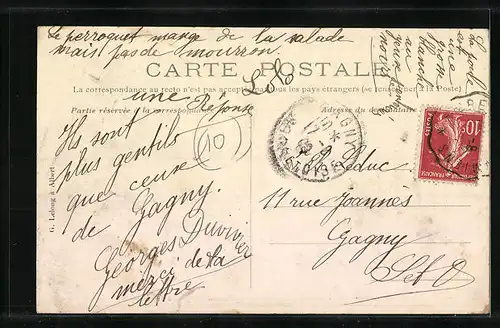 Le perroquet mange de la salade
mais pas de mouron.
CARTE POSTALE
La correspondance au recto n'est pas acceptée par tous les pays étrangers (se renseigner à la Poste)
Partie réservée à la correspondance
Adresse du destinataire
une Réponse
Ils sont
plus gentils
que ceux
de Gagny.
Georges Duvivier
merci de la
lettre
10
Leduc
11 rue Joannès
Gagny
S et O
G. Lelong à Albert
une
grosse
10c
POSTES
FRANÇAISE